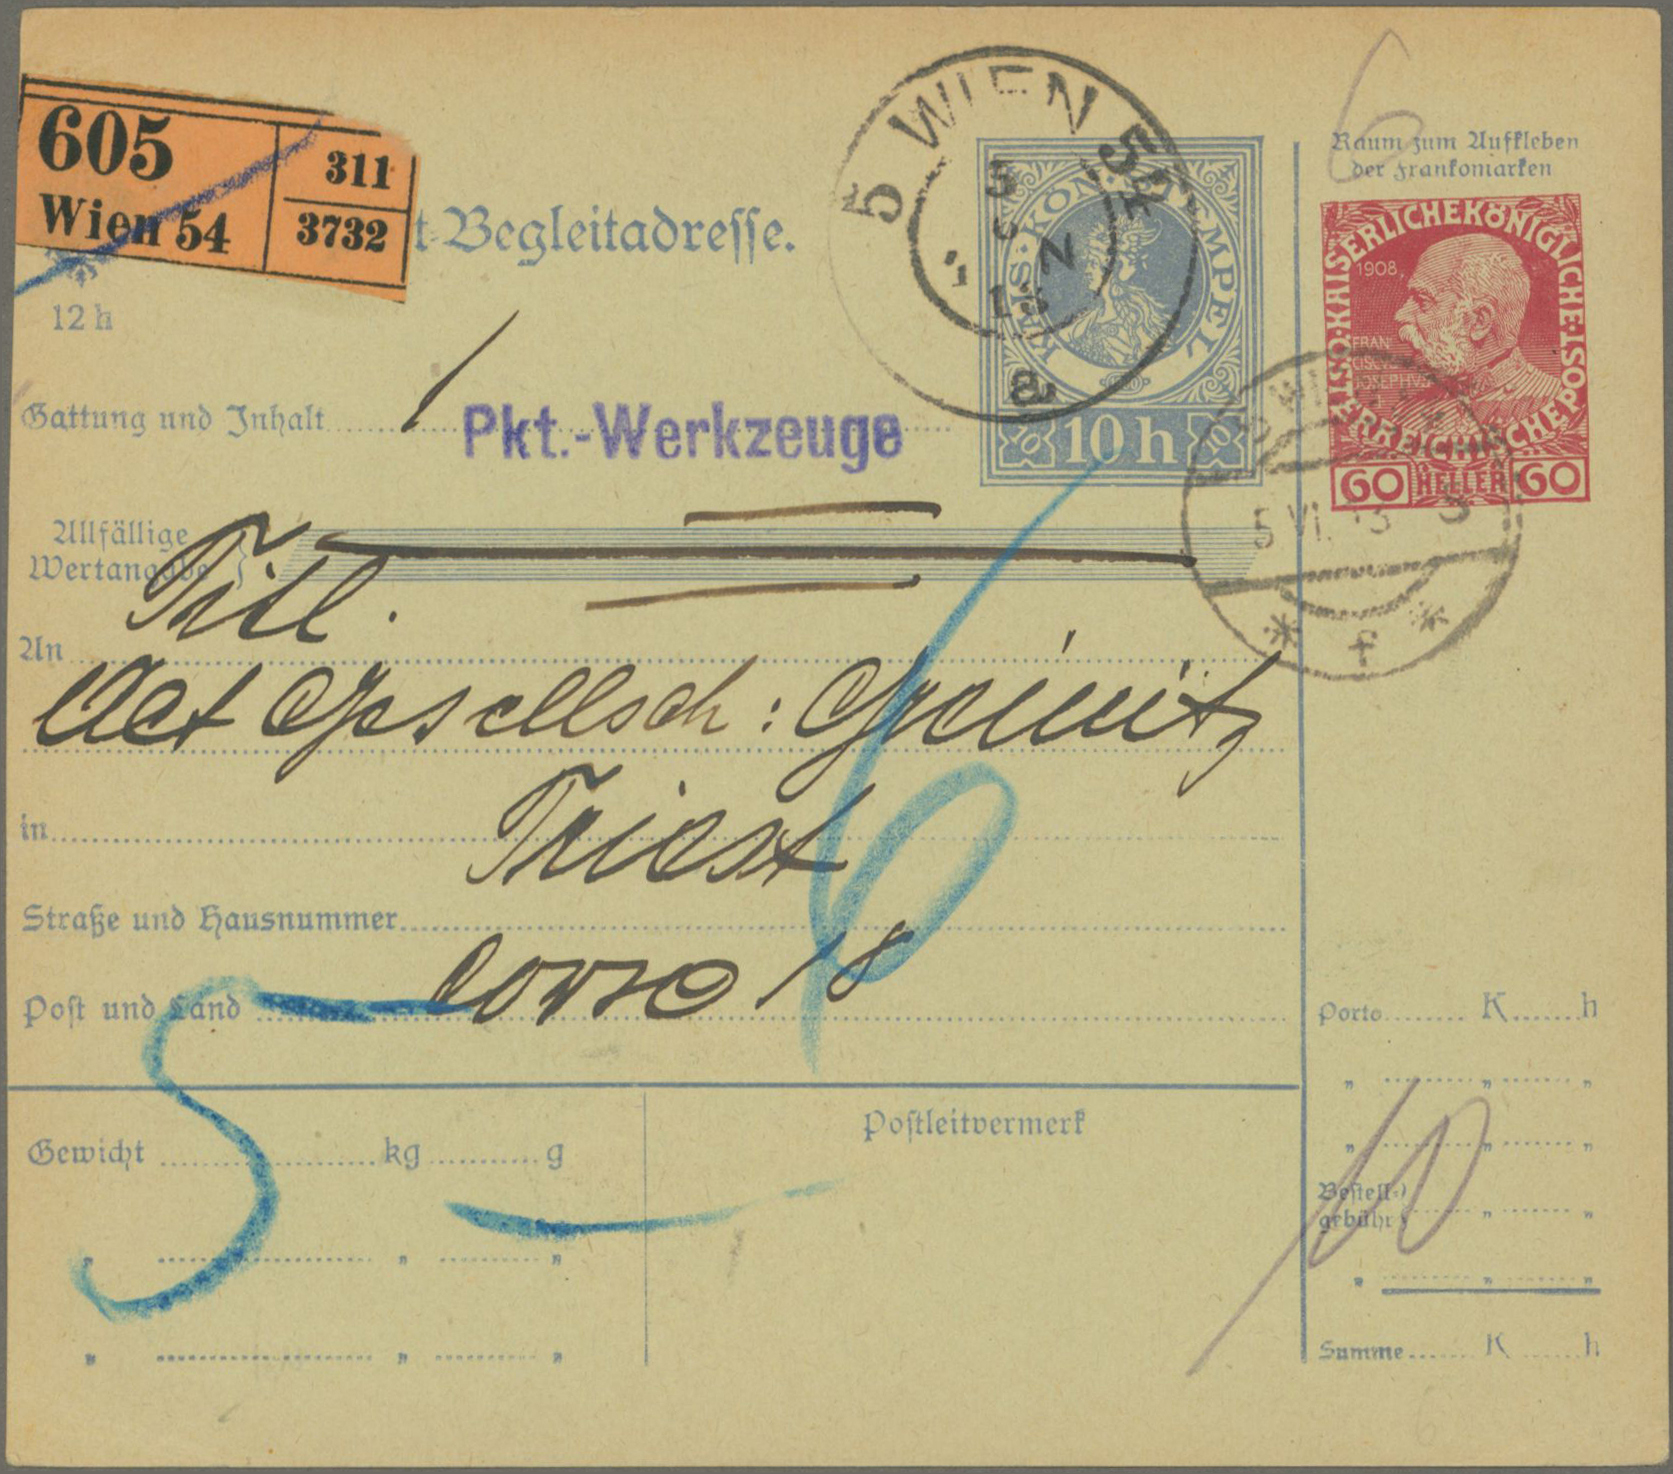 605
Wien 54
311
3732
t-Begleitadresse.
12 h
5 WIEN 54
5
13
a
KAIS·KÖN·STEMPEL
10 10 h 10
Raum zum Aufkleben
der Frankomarken
6
KAISERLICHE KÖNIGLICHE ÖSTERREICHISCHE POST
1908
FRAN
CISCVS
IOSEPHVS
60 HELLER 60
5 VI. 13 3
* f *
Gattung und Inhalt 1 Pkt.-Werkzeuge
Allfällige
Wertangabe
Titl.
An
Act Gesellsch: Greinitz
in Triest
Straße und Hausnummer
Post und Land Corso 18
6
5
Gewicht kg g
" " "
" " "
Postleitvermerk
Porto K h
" " "
" " "
Bestell-
gebühr " "
" " "
10
Summe K h